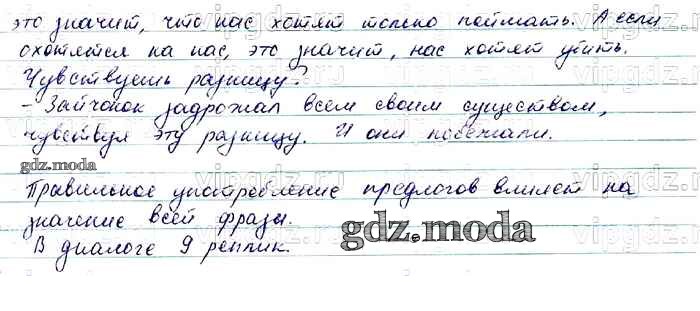 это значит, что нас хотят только поймать. А если
охотятся на нас, это значит, нас хотят убить.
Чувствуешь разницу?
- Зайчонок задрожал всем своим существом,
чувствуя эту разницу. И они побежали.
gdz.moda
Правильное употребление предлогов влияет на
значение всей фразы.
В диалоге 9 реплик.
gdz.moda